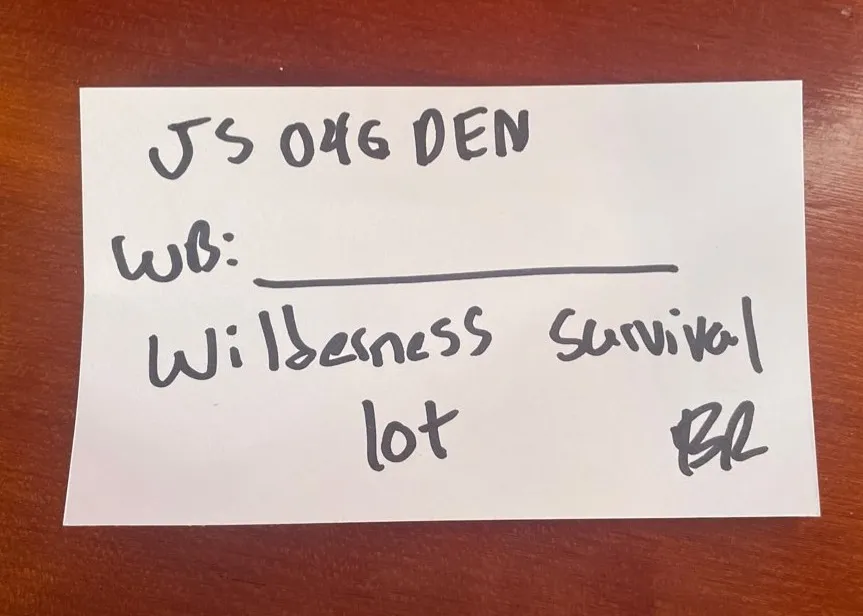 JS 046 DEN
WB: __________
Wilderness Survival
lot BR